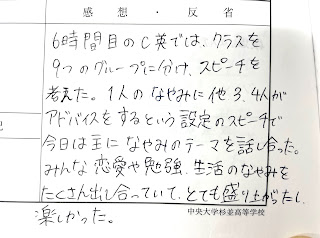 感想・反省
6時間目のC英では、クラスを
9つのグループに分け、スピーチを
考えた。1人のなやみに他3,4人が
アドバイスをするという設定のスピーチで
今日は主になやみのテーマを話し合った。
みんな恋愛や勉強、生活のなやみを
たくさん出し合っていて、とても盛り上がったし、
楽しかった。
中央大学杉並高等学校